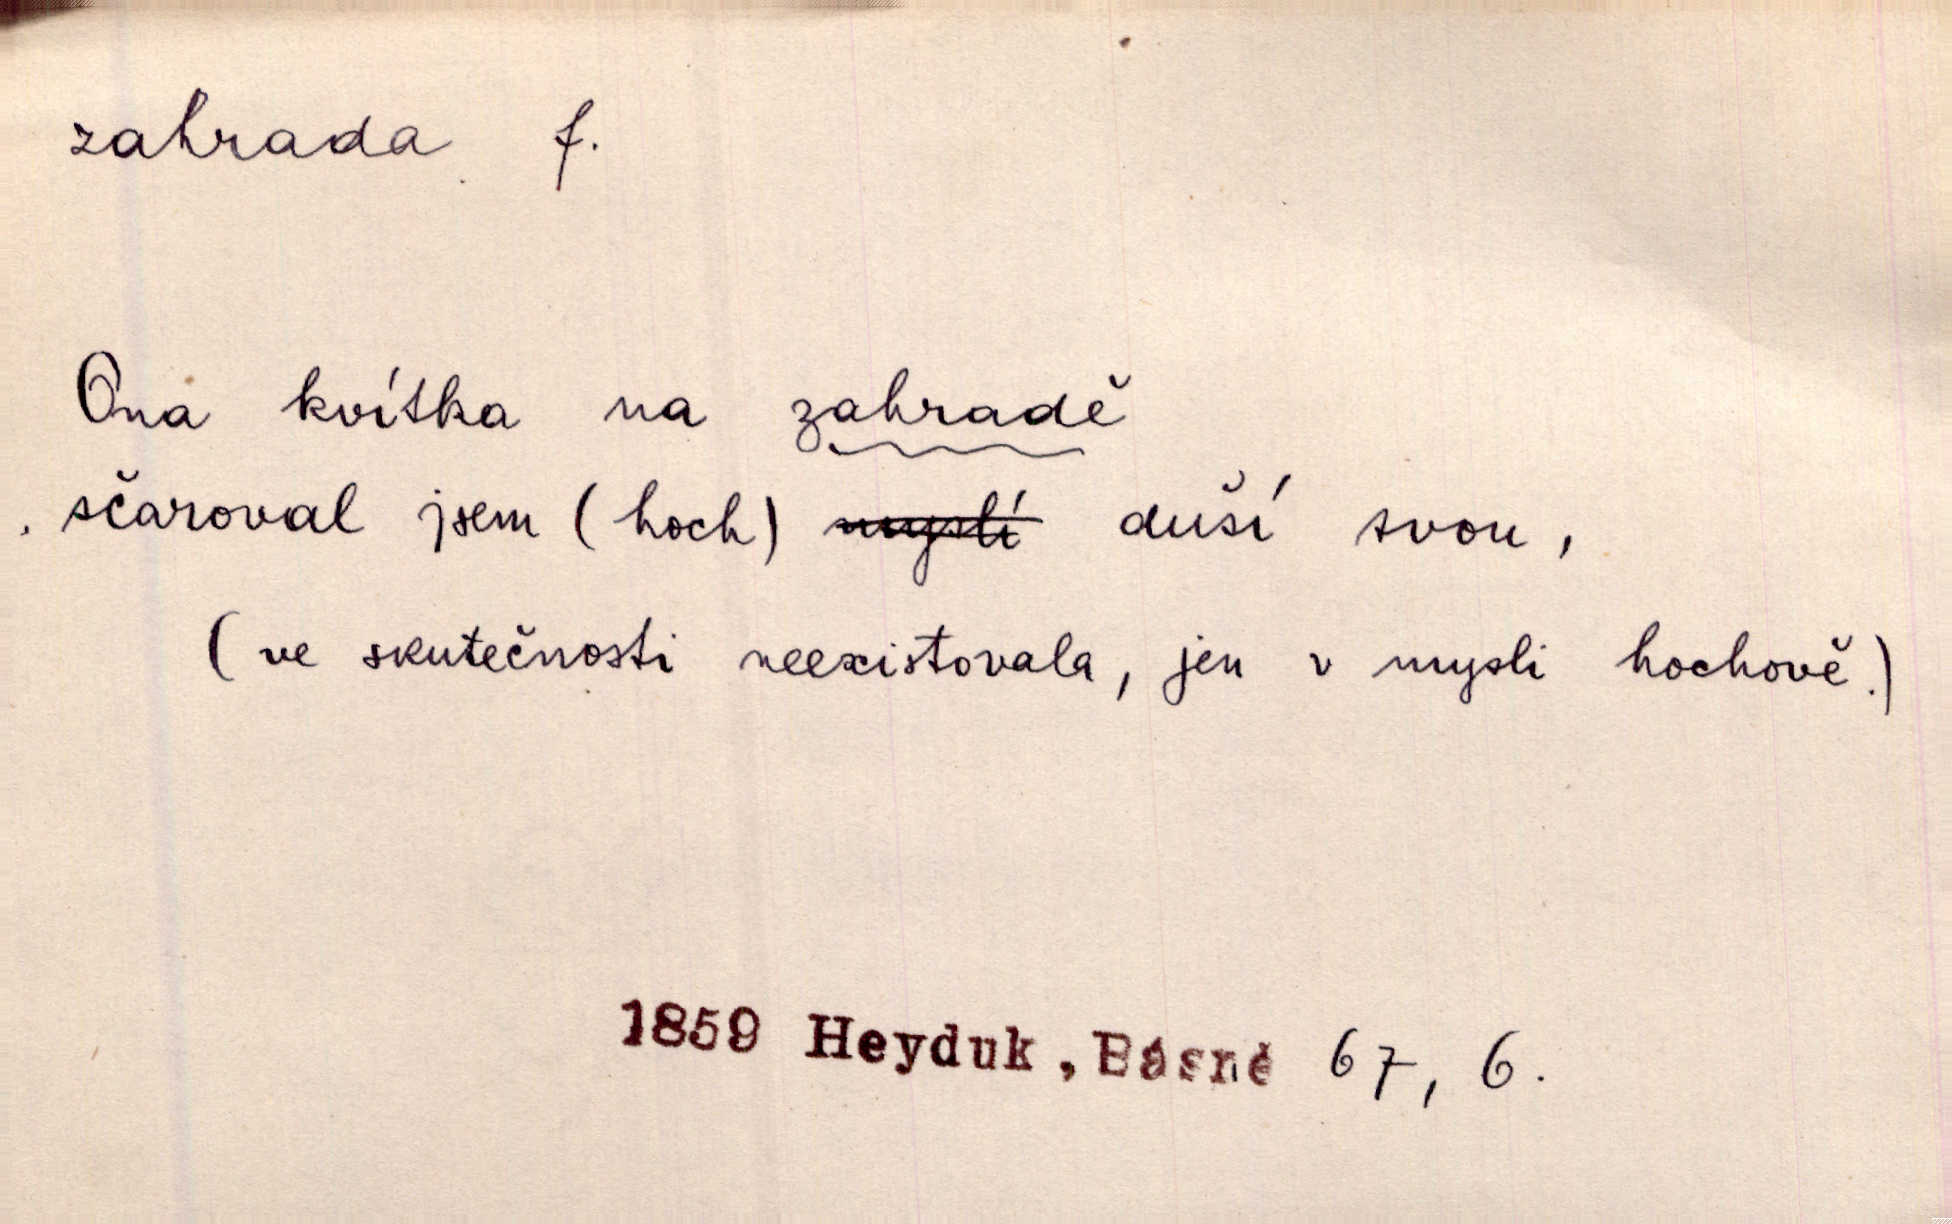 zahrada f.
Ona kvítka na zahradě
sčaroval jsem (hoch) myslí duší svou,
(ve skutečnosti neexistovala, jen v mysli hochově.)
1859 Heyduk, Básně 67, 6.